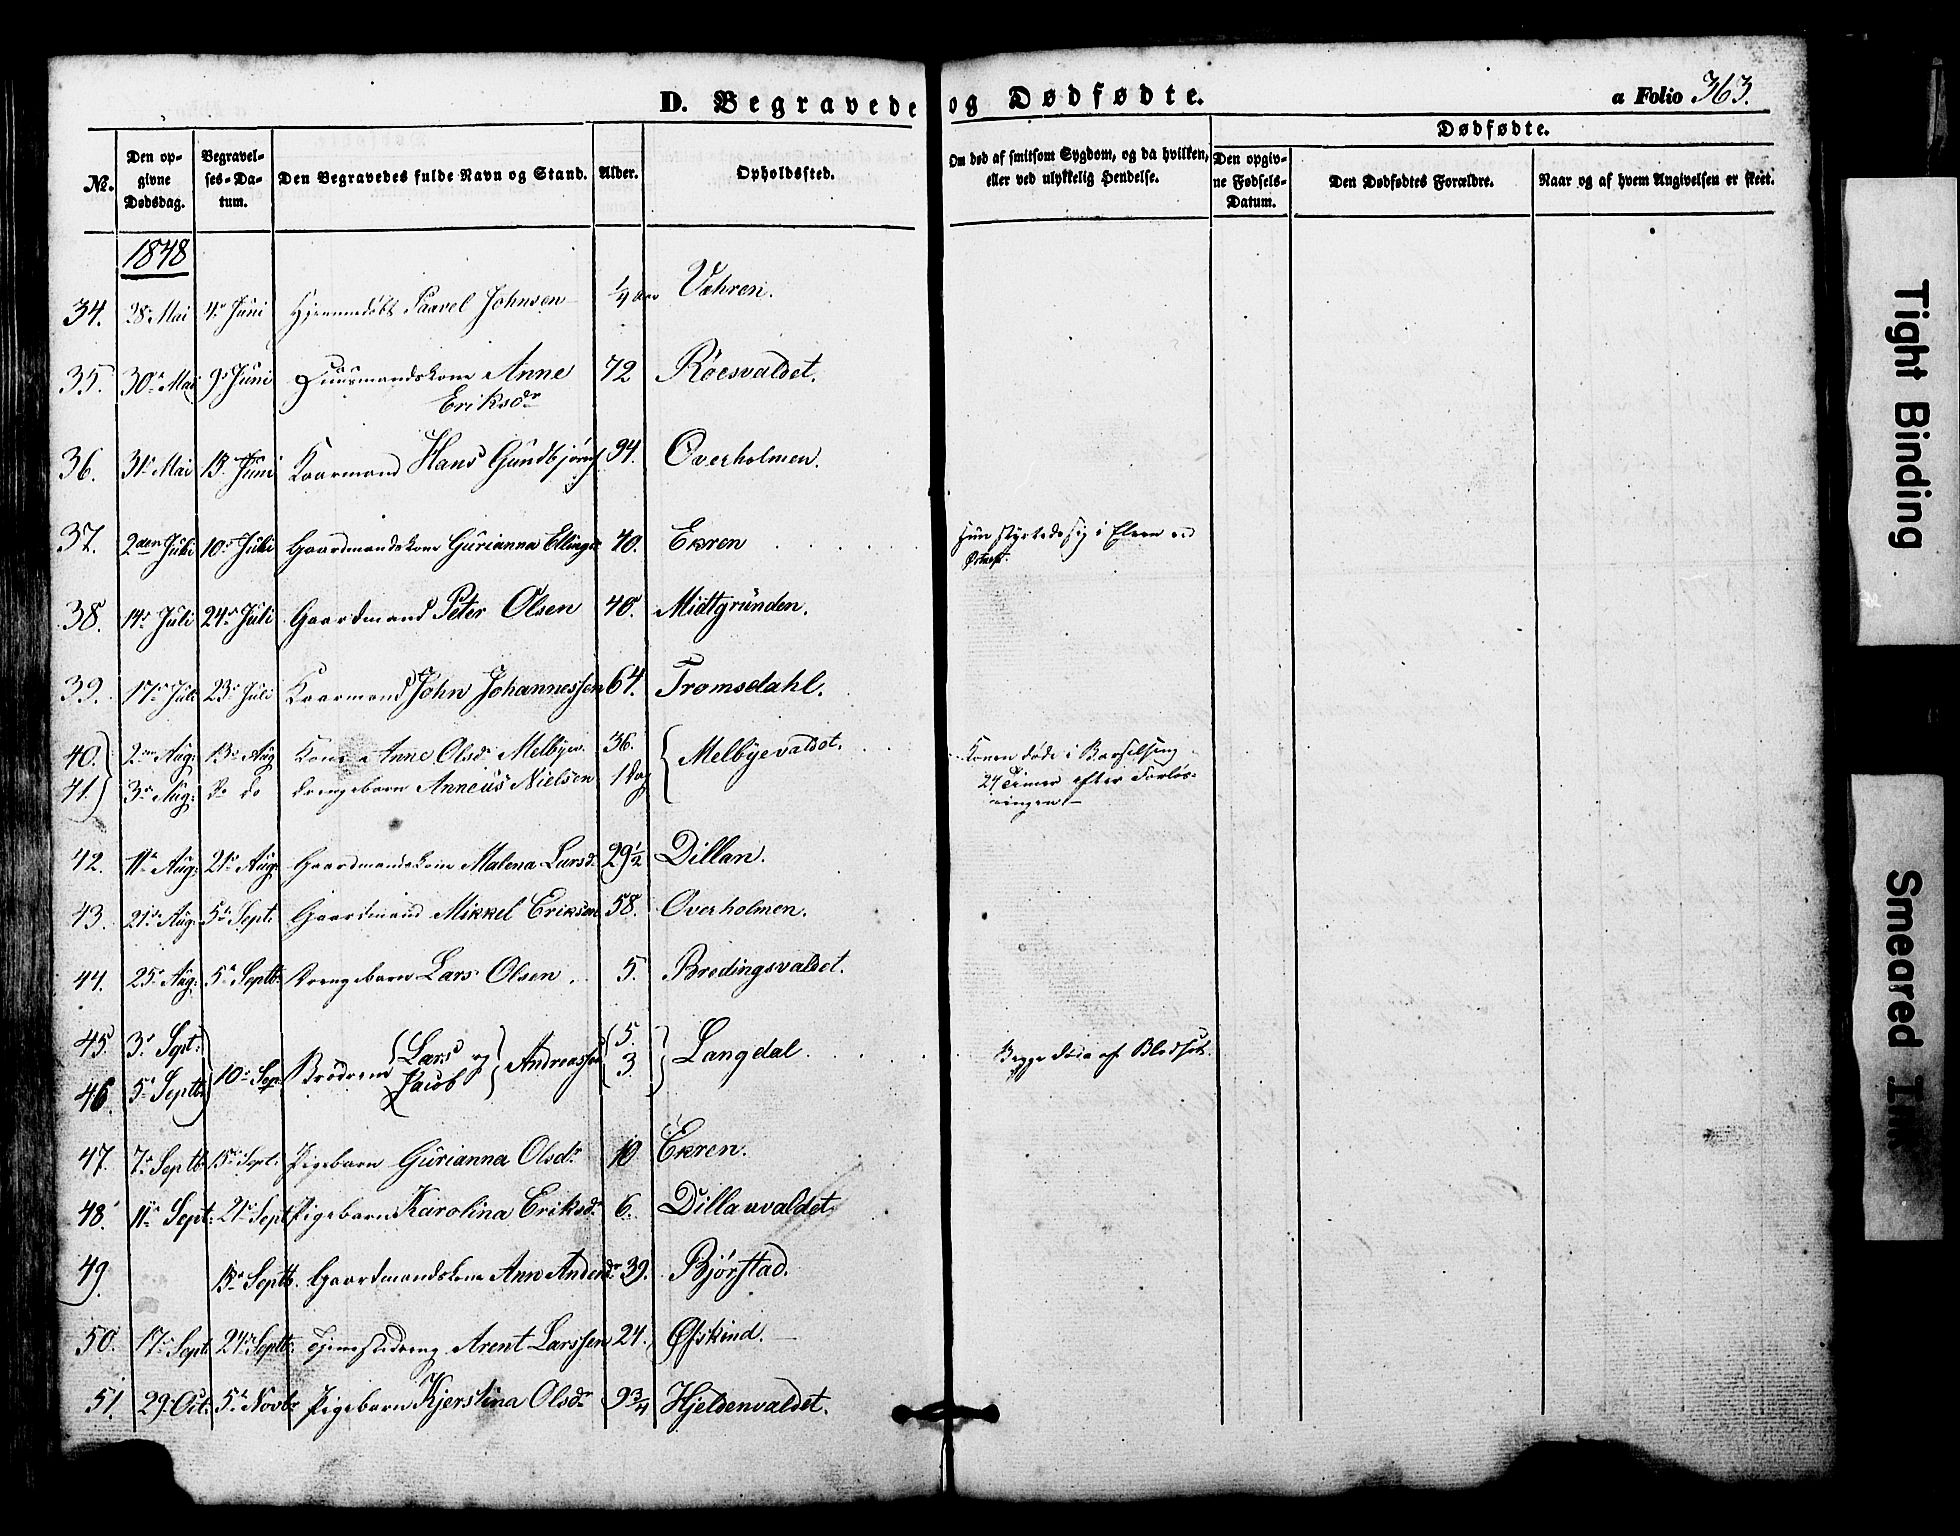 D. Begravede og Dødfødte.
a Folio 363.
Dødfødte.
No. Den opgivne Dødsdag. Begravelses-Datum. Den Begravedes fulde Navn og Stand. Alder. Opholdssted. Om død af smitsom Sygdom, og da hvilken, eller ved ulykkelig Hendelse. Den opgivne Fødsels-Datum. Den Dødfødtes Forældre. Naar og af hvem Angivelsen er skeet.
1848
34. 28de Mai 4de Juni Hjemmedøbt Paavel Johnsen 1/4 Aar Vehren.
35. 30te Mai 9de Juni Huusmandskone Anne 72 Røesvaldet.
Eriksdr
36. 31te Mai 13de Juni Kaarmand Hans Gundbjørns. 94. Overholmen.
37. 2den Juli 10de Juli Gaardmandskone Gurianna Ellingsdr 40. Ekren Hun styrtede sig i Elven
38. 14de Juli 24de Juli Gaardmand Peter Olsen 40. Midtgrunden.
39. 17de Juli 23de Juli Kaarmand John Johannessen 64. Tromsdahl.
40. 2den Aug: 13de Aug Kone Anne Olsdr Melbye. 36. Melbyevaldet. Konen døde i Barselseng
41. 3de Aug: do do Drengebarn Anneus Nielsen 1 Dag 24 Timer efter Forløs-
ningen.
42. 11te Aug: 21de Aug: Gaardmandskone Malena Larsd. 29 1/2 Dillan.
43. 21de Aug: 3de Sept: Gaardmand Mikkel Eriksen 58. Overholmen.
44. 25de Aug: 5te Septb: Drengebarn Lars Olsen. 5. Bredingsvaldet.
45. 3de Sept: 10de Sep: Brødrene Lars og Andreassen 5. Langdal. Begge døde af Blodsot.
46. 5te Septb: Jacob 3.
47. 7de Septb 15de Sept. Pigebarn Gurianna Olsdr 10 Ekren.
48. 11te Sept: 21de Sept Pigebarn Karolina Eriksd. 6. Dillanvaldet.
49. 13de Septb. Gaardmandskone Ane Andersdr 39. Bjørstad.
50. 17de Sept 24de Septb: Tjenestedreng Arent Larssen 24. Øfskind.
51. 29. Oct. 5te Novbr Pigebarn Kjerstina Olsdr 9 3/4 Hjeldenvaldet.
Tight Binding
Smeared Ink